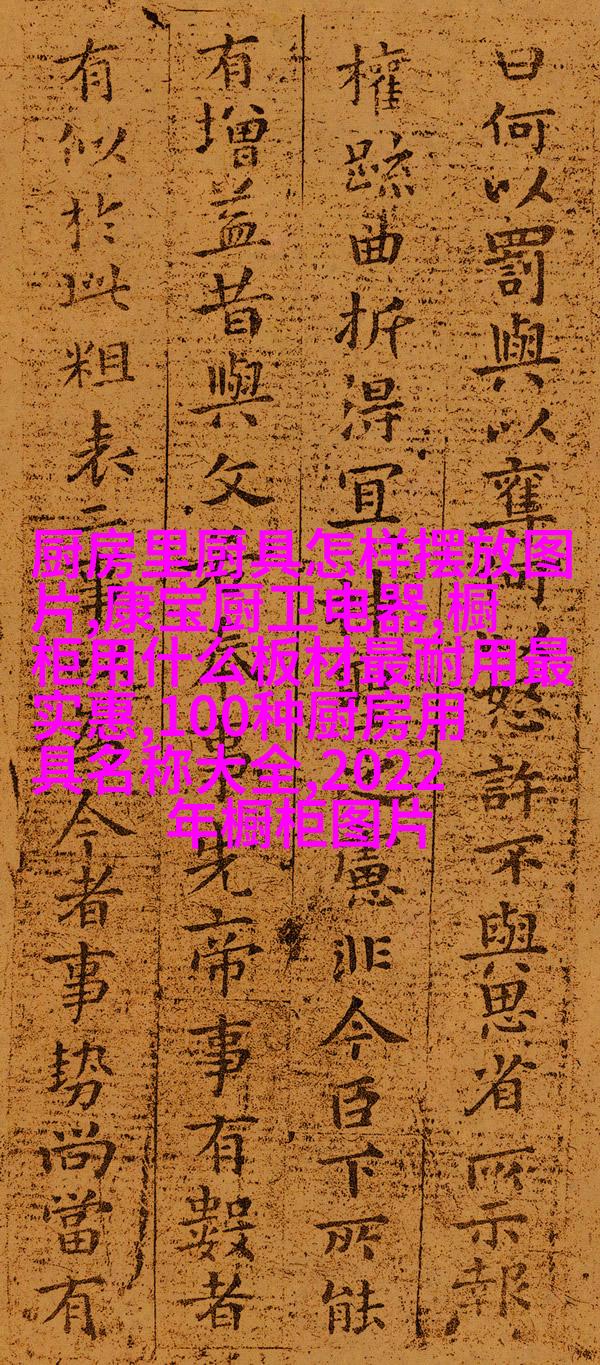 日何以罰與以奪怒許不與思省所示報
權疏曲折得宜慮非今臣下所能
有增益昔與文先帝事有數者
有似於此粗表二今者事勢尚當有
厨房里厨具怎样摆放图
片,康宝厨卫电器,橱
柜用什么板材最耐用最
实惠,100种厨房用
具名称大全,2022
年橱柜图片